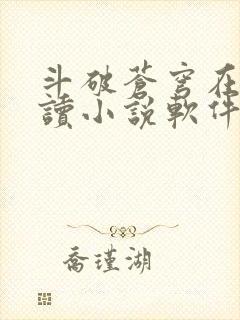 斗破蒼穹在
讀小説軟件
喬瑾湖